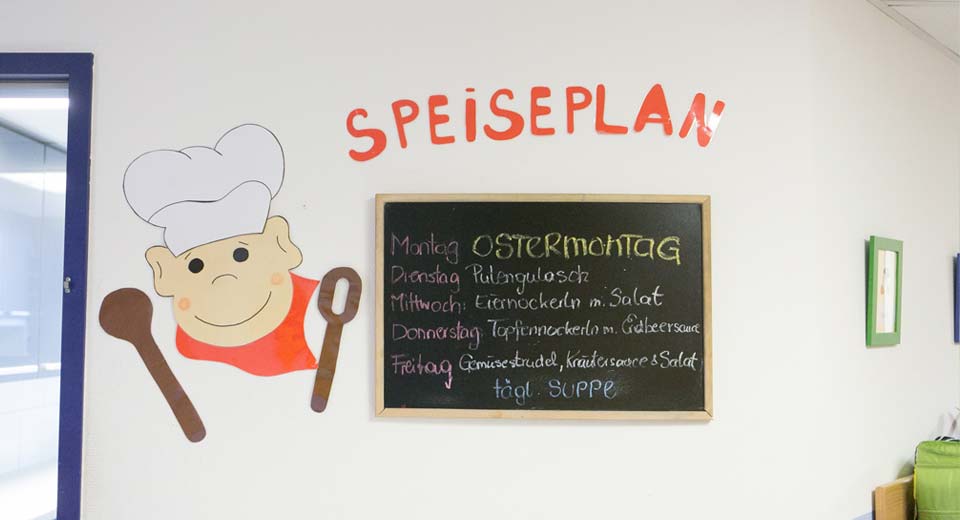 SPEiSEPLAN
Montag OSTERMONTAG
Dienstag Putengulasch
Mittwoch: Eiernockerln m. Salat
Donnerstag: Topfennockerln m. Erdbeersauce
Freitag Gemüsestrudel, Kräutersauce & Salat
tägl. SUPPE